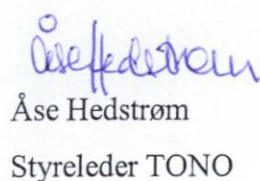 Åse Hedstrøm
Åse Hedstrøm
Styreleder TONO